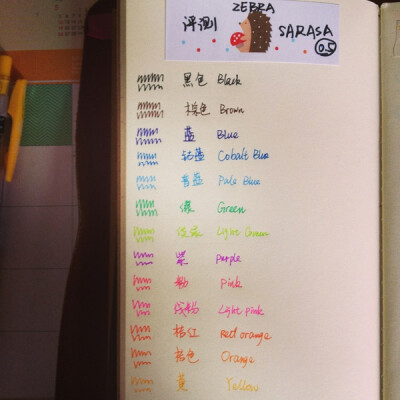 ZEBRA
评测
SARASA
0.5
黑色 Black
棕色 Brown
蓝 Blue
钴蓝 Cobalt Blue
苍蓝 Pale Blue
绿 Green
浅绿 Light Green
紫 Purple
粉 Pink
浅粉 Light Pink
桔红 Red orange
桔色 Orange
黄 Yellow